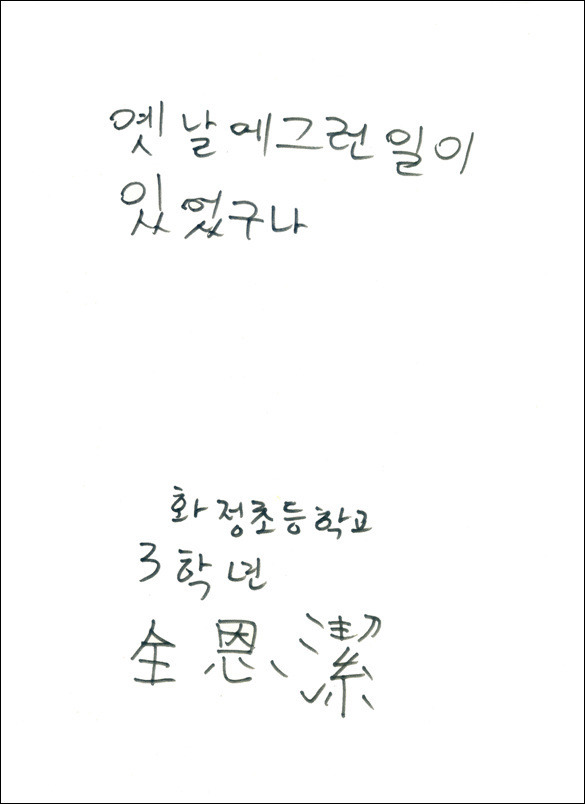 옛날에그런일이
있었구나
화정초등학교
3학년
全恩潔